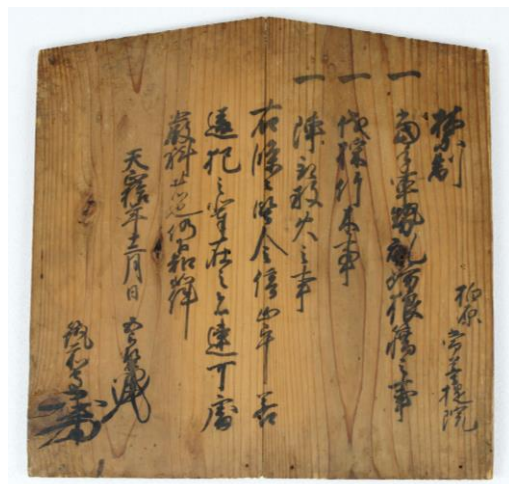 禁制
柏原
常菩提院
一 当手軍勢乱妨狼藉之事
一 伐採竹木事
一 陣取放火之事
右條々堅令停止畢若
違犯之輩在之者速可處
嚴科者也仍如件
天正拾年十二月日
筑前守